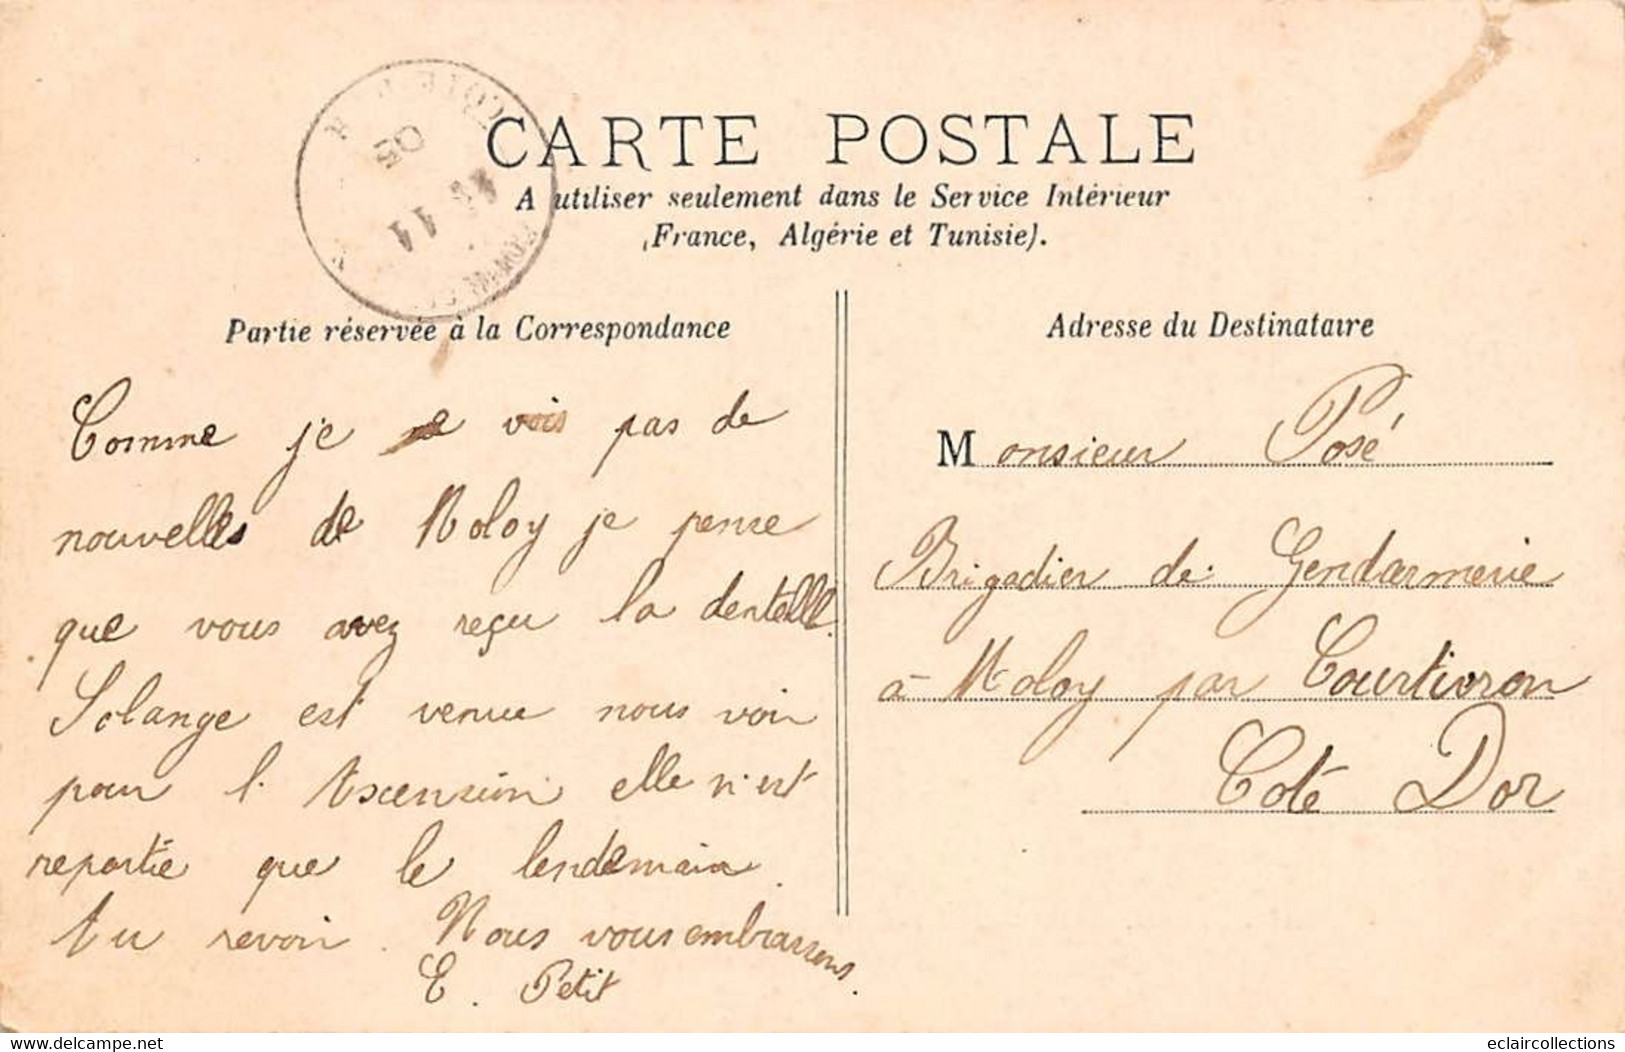 CARTE POSTALE
A utiliser seulement dans le Service Intérieur
(France, Algérie et Tunisie).
COTE D'OR
11
05
Partie réservée à la Correspondance
Adresse du Destinataire
Comme je ne vois pas de
nouvelles de Moloy je pense
que vous avez reçu la dentelle.
Solange est venue nous voir
pour l'Ascension elle n'est
repartie que le lendemain.
Au revoir. Nous vous embrassons.
E. Petit
Monsieur Posé
Brigadier de Gendarmerie
à Moloy par Courtivron
Coté Dor
eclaircollections
www.delcampe.net